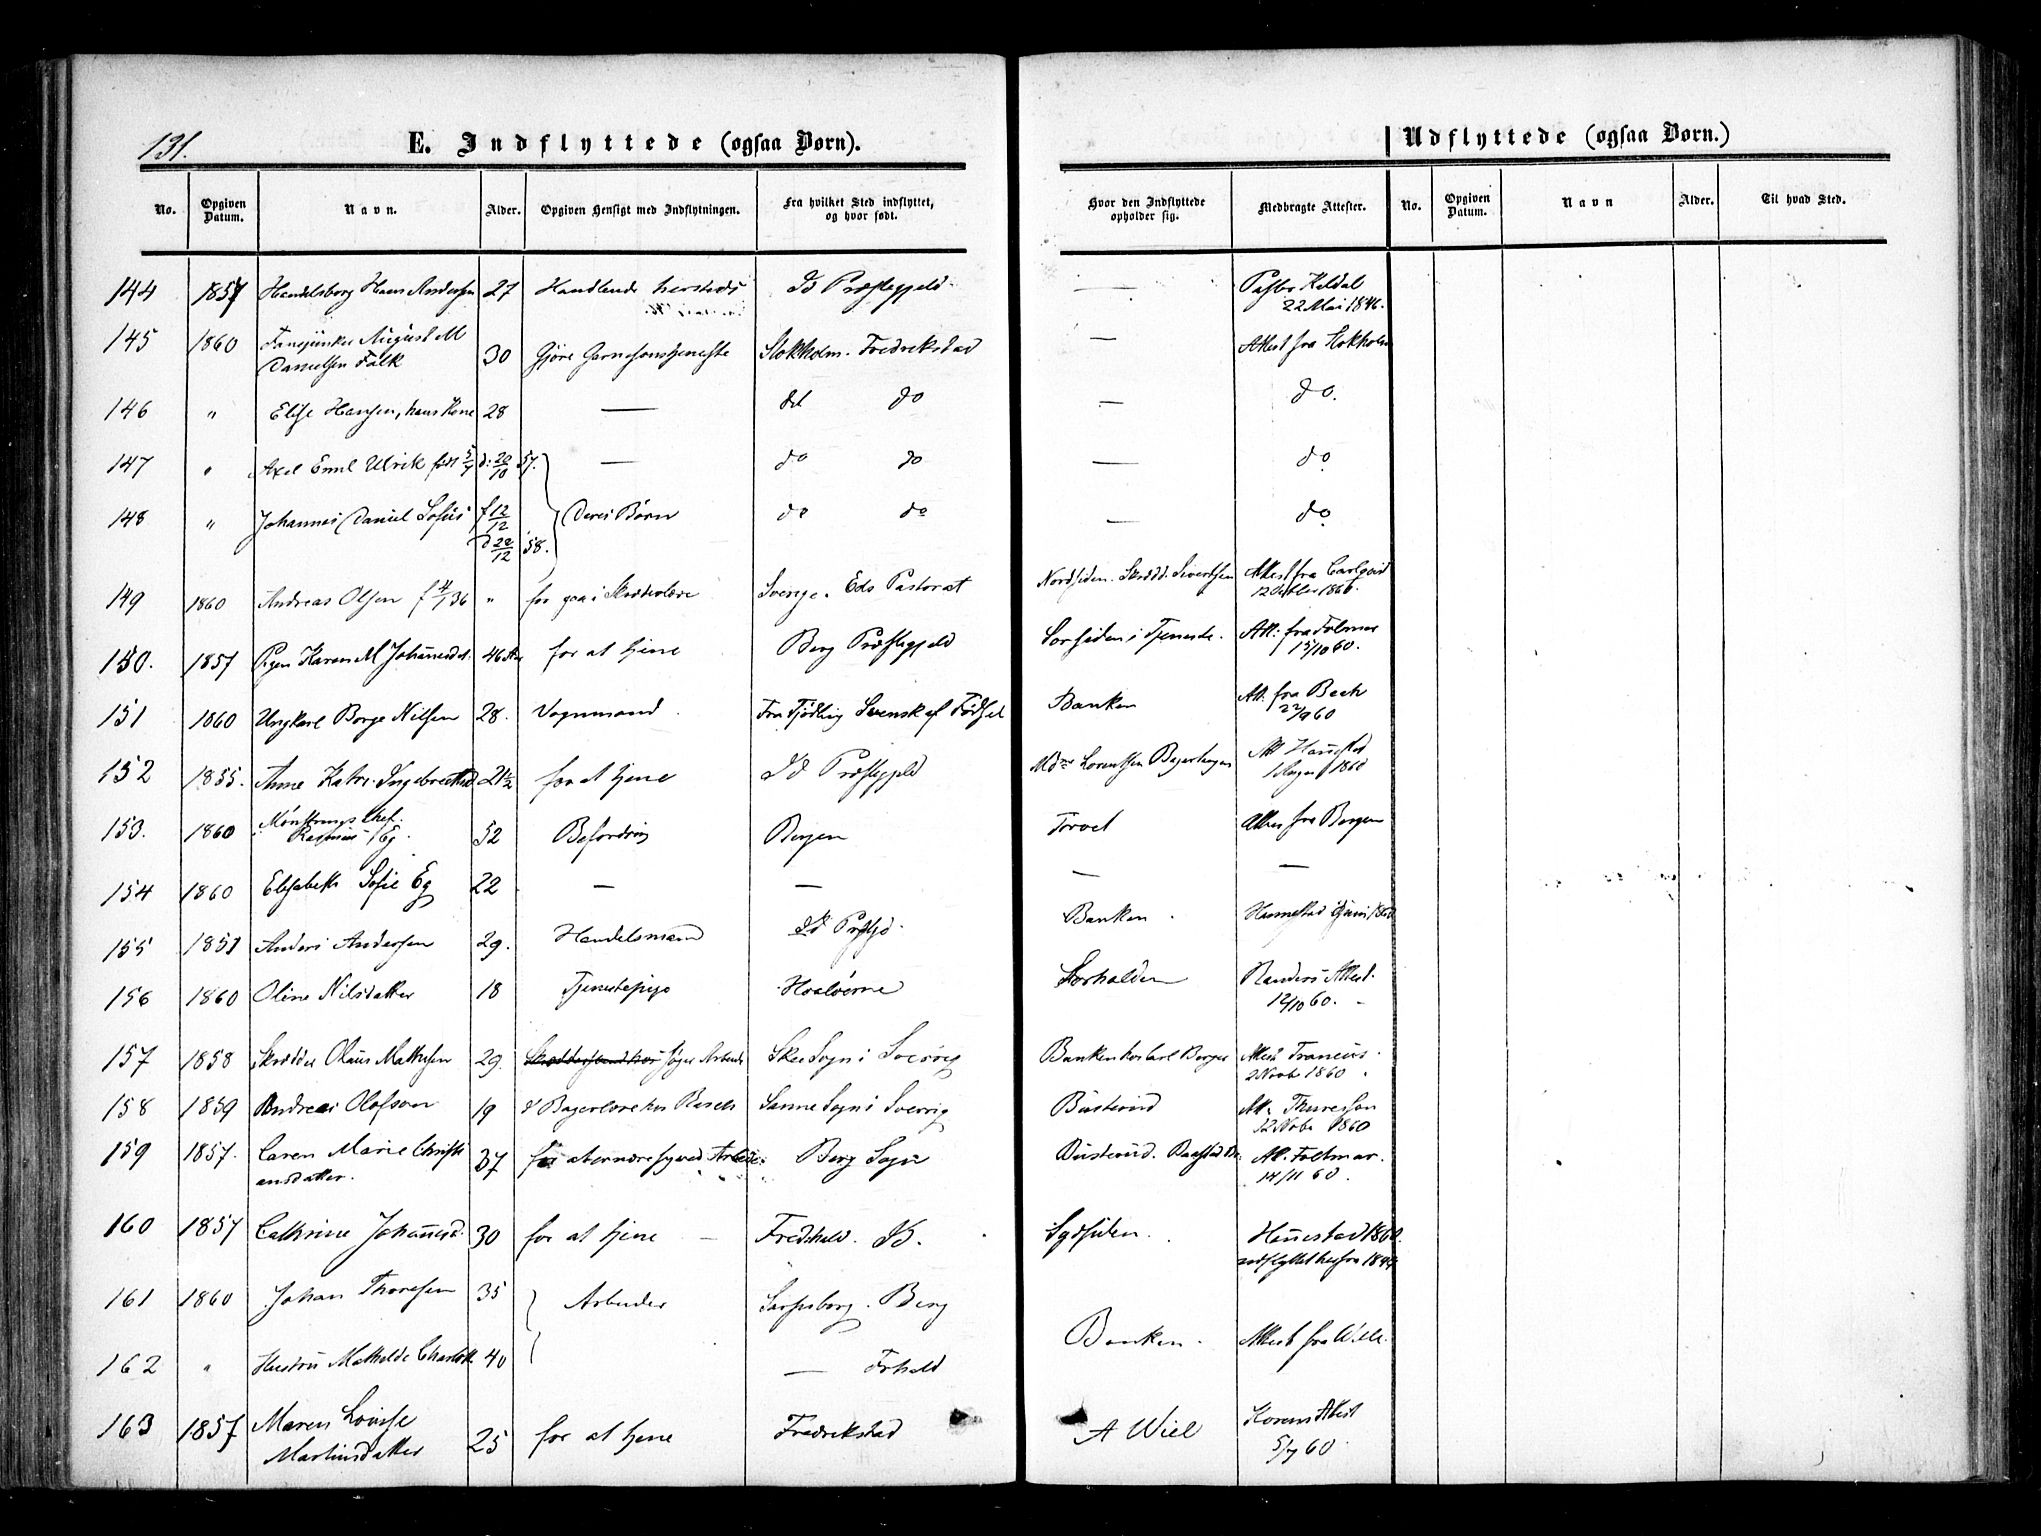 131.
E. Indflyttede (ogsaa Børn).
Udflyttede (ogsaa Børn.)
No. Opgiven Datum. Navn. Alder. Opgiven Hensigt med Indflytningen. Fra hvilket Sted indflyttet, og hvor født. Hvor den Indflyttede opholder sig. Medbragte Attester. No. Opgiven Datum. Navn Alder. Til hvad Sted.
144 1857 Handelsborg Hans Andersen 27 Handlende Id Præstegjeld — Pastor Keldal
22 Mai 1846.
145 1860 August M
Danielsen Falk 30 Gjøre Garnisonstjeneste Stokholm. Fredrikstad — Attest fra Stokholm
146 " Elise Hansen, hans Kone 28 — do do — do.
147 " Axel Emil Ulrik født 5/7 d: 20/10 57. — do do — do
148 " Johannes Daniel Sofus f 12/12 Deres Børn do do — do
d 22/12 58.
149 1860 Andreas Olsen f 4/1 36 " for gaa i Skræderlære Sverige. Eds Pastorat Nordsiden. Skrædd. Sivertsen Attest fra Carlqvist
150. 1857 Pigen Karen M Johannesdt. 46 for at tjene Berg Præstegjeld Sørsiden i Tjeneste. Att: fra
15/10 60.
151 1860 Ungkarl Borge Nilsen 28. Vognmand. Fra Tjødling Svensk af Fødsel Banken Att: fra Bech
22/9 60
152 1855. Anne Katr. Ingebretsd 21½ for at tjene Id Præstegjeld Mdme Lorentsen
1860
153. 1860 Mønstringschef.
Rasmus Eg. 52 Befordring Bergen Torvet Attest fra Bergen
154 1860 Elisabeth Sofie Eg 22 — — — —
155 1851 Anders Andersen 29. Handelsmand Id Banken.
156 1860 Oline Nilsdatter 18 Tjenestepige Hvaløerne Randers Attest.
12/10 60.
157 1858 Skrædder Olaus Mathisen 29. søger Arbeide Skee Sogn i Sverrig Banken hos Carl Borger Attest
2 Novb 1860
158 1859 Andreas Olofson 19 i Bagerlære hos Sanne Sogn i Sverrig Att. Thuresson
12 Novb 1860
159 1857. Caren Marie Christi
ansdatter. 37 for at ernære sig ved Arbeide. Berg Sogn Att. Foltmar.
14/11 60.
160 1857 Cathrine Johannesd. 30 for at tjene — Fredshald. Sydsiden. 1860.
udflyttet herfra 1844
161 1860 Johan Thoresen 35 Arbeider Sarpsborg. Berg
Banken. Attest fra Wille.
162 " Hustru Mathilde Charlotte 40 — Frhald
163 1857 Maren Lovise
Martinsdatter 25 for at tjene Fredrikstad A Wiel Attest
5/7 60